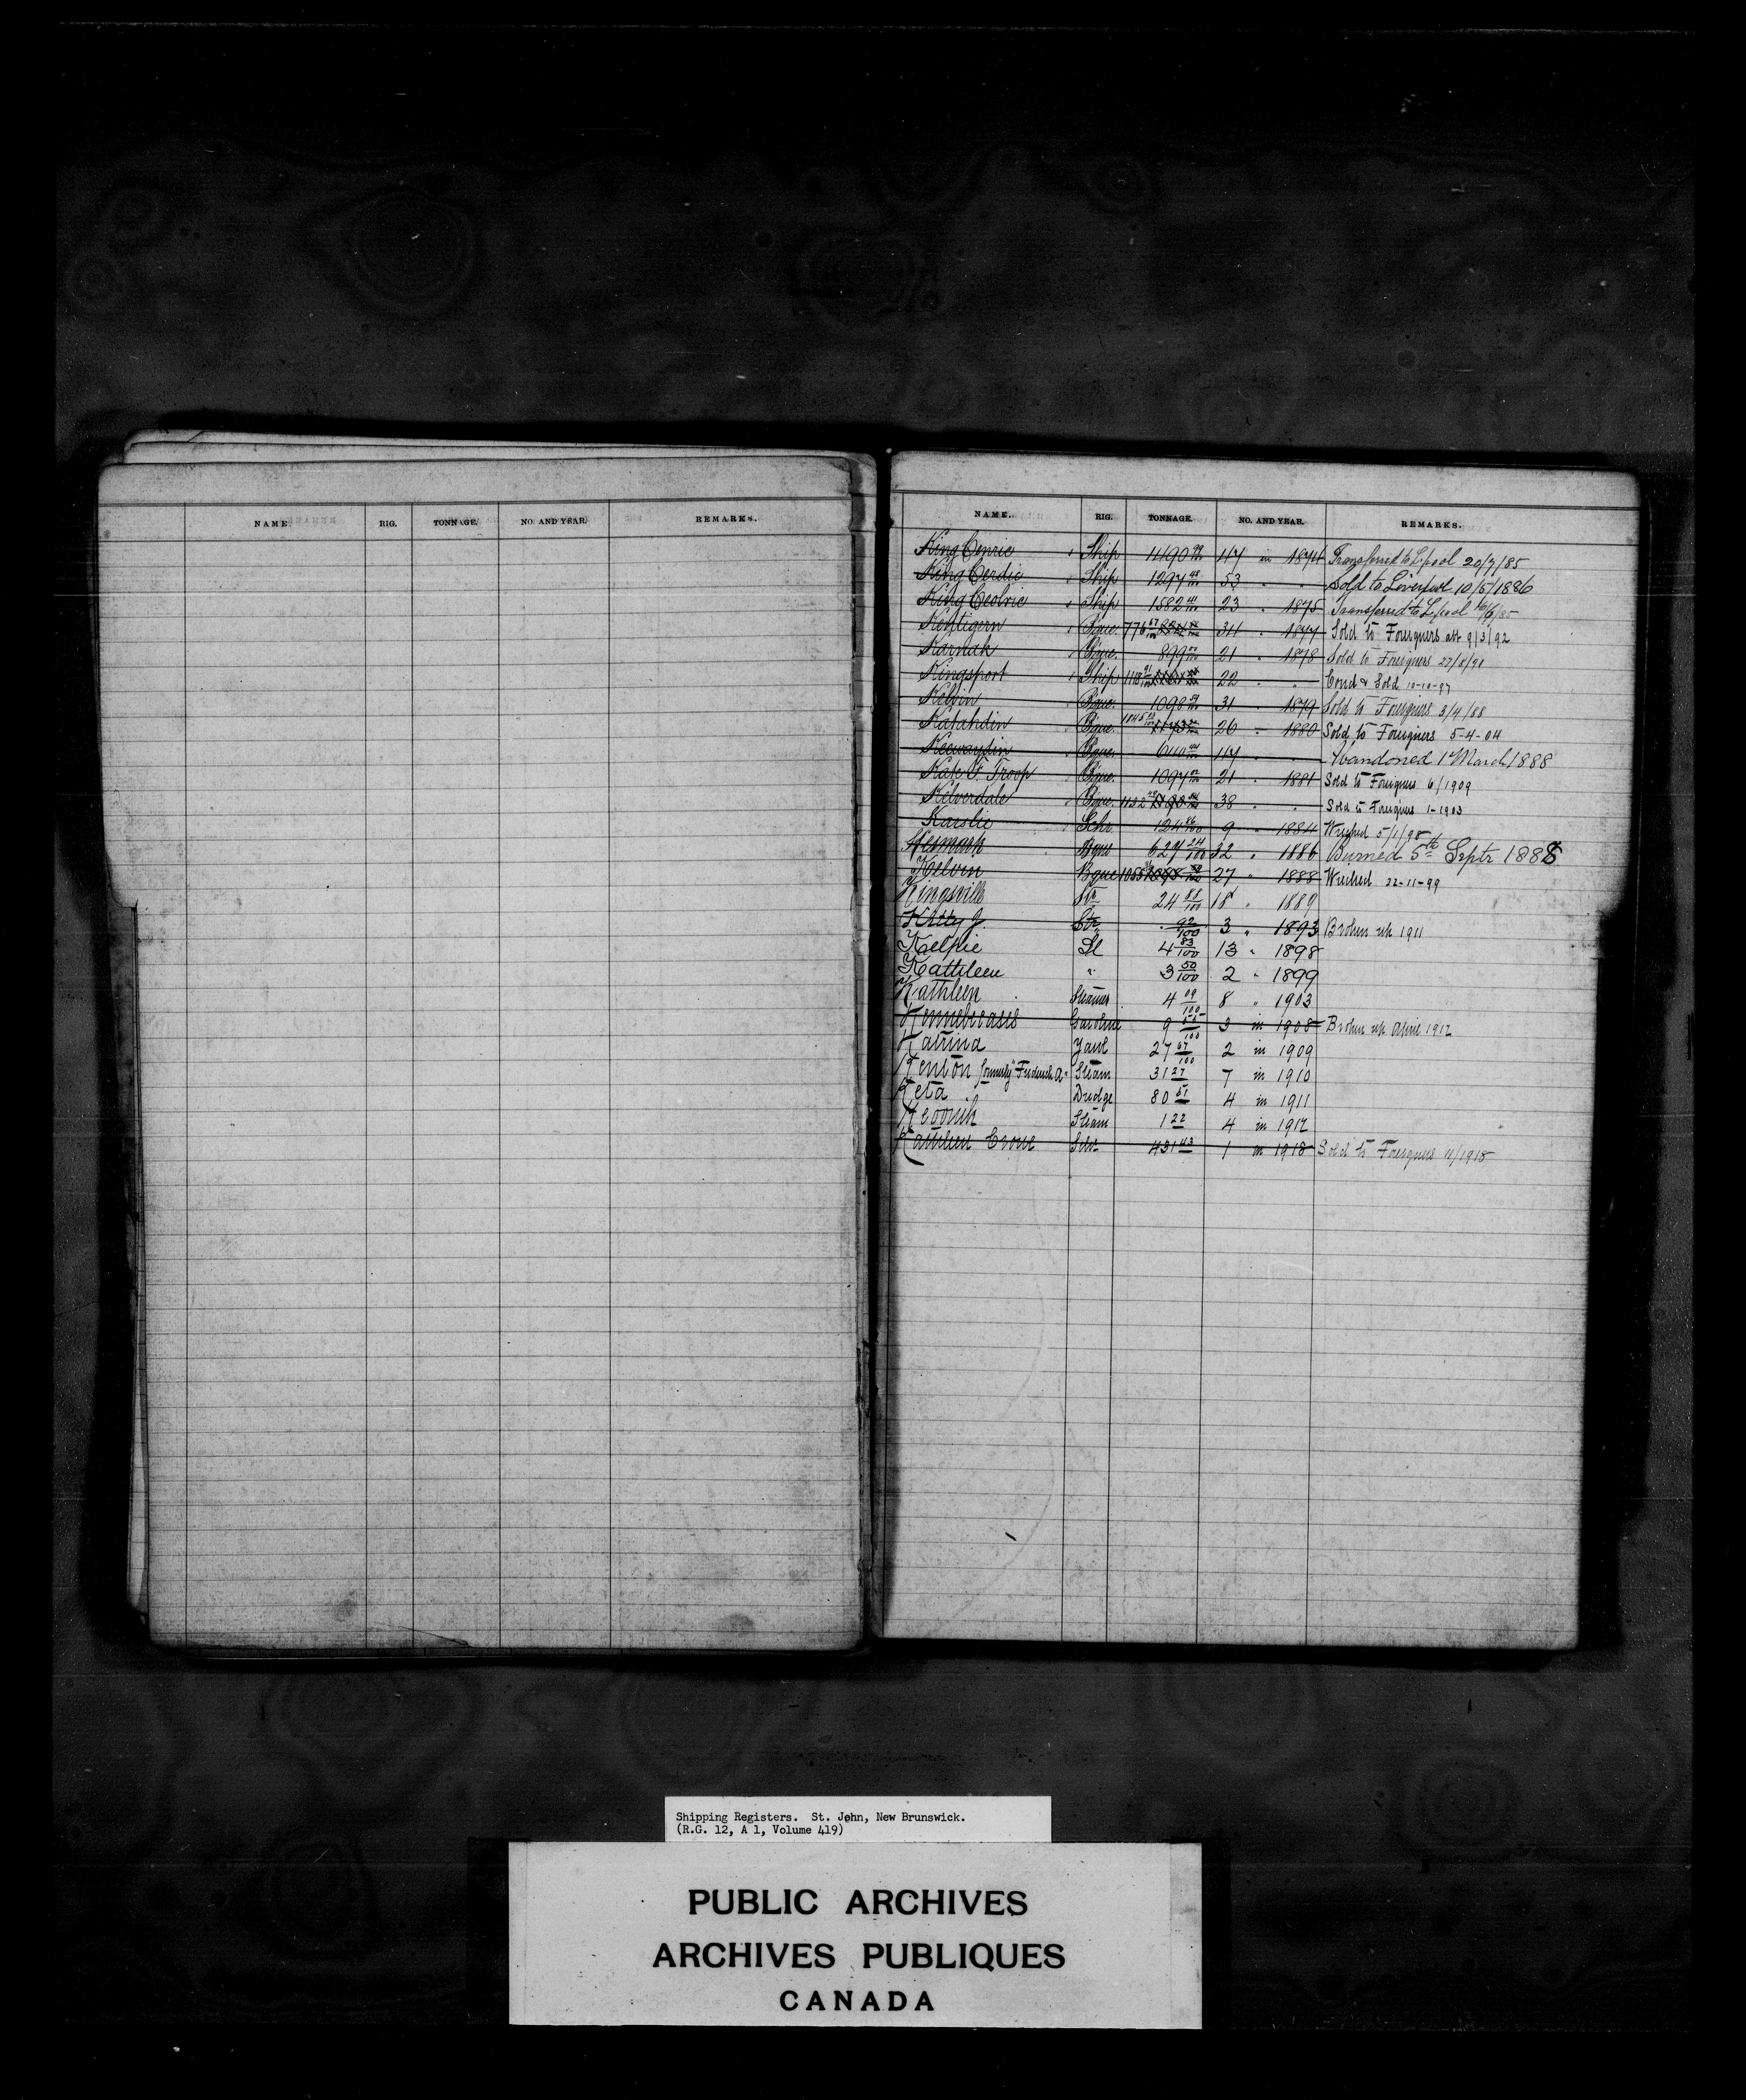 NAME. RIG. TONNAGE. NO. AND YEAR. REMARKS.
NAME. RIG. TONNAGE. NO. AND YEAR. REMARKS.
King Cenric Ship 1490 47 in 1874 Transferred to Lpool 20/7/85
King Cerdic Ship 1297 48/100 53 " " Sold to Liverpool 10/5/1886
King Ceolric Ship 1582 23 " 1875 Transferred to Lpool
Kentigern Bque. 776 34 " 1877 Sold to Foreigners abt 9/3/92
Karnak Bque. 899 21 " 1878 Sold to Foreigners 27/8/91
Kingsport Ship 1118 22 " " Cond & Sold 10-10-97
Kelvin Bque. 1098 31 " 1879 Sold to Foreigners 3/4/88
Katahdin Bque. 1045 1173 26 " 1880 Sold to Foreigners 5-4-04
Keewaydin Bque. 640 47 " " Abandoned 1 March 1888
Kate F. Troop Bque. 1097 21 " 1881 Sold to Foreigners 6/1909
Kelverdale Bque. 1132 38 " " Sold to Foreigners 1-1903
Karslie Schr 124 86/100 9 " 1884 Wrecked 5/1/98
Kesmark Bque 627 24/100 32 " 1886 Burned 5th Septr 1888
Kelvin Bque 1088 27 " 1888 Wrecked 22-11-99
Kingsville Str 24 88/100 18 " 1889
Kitty J. Str. 92/100 3 " 1893 Broken up 1911
Kelpie Sl 4 83/100 13 " 1898
Kathleen " 3 50/100 2 " 1899
Kathleen Steamer 4 09/100 8 " 1903
Kennebecasis Gasoline 9 55/100 3 in 1908 Broken up April 1912
Katrina Yawl 27 67/100 2 in 1909
Kenton formerly "Frederick A" Steam 31 27 7 in 1910
Keta Dredge 80 51 4 in 1911
Steam 1 22 4 in 1912
Kathleen Crowe Schr 431 43 1 in 1918 Sold to Foreigners 11/1918
Shipping Registers. St. John, New Brunswick.
(R.G. 12, A 1, Volume 419)
PUBLIC ARCHIVES
ARCHIVES PUBLIQUES
CANADA